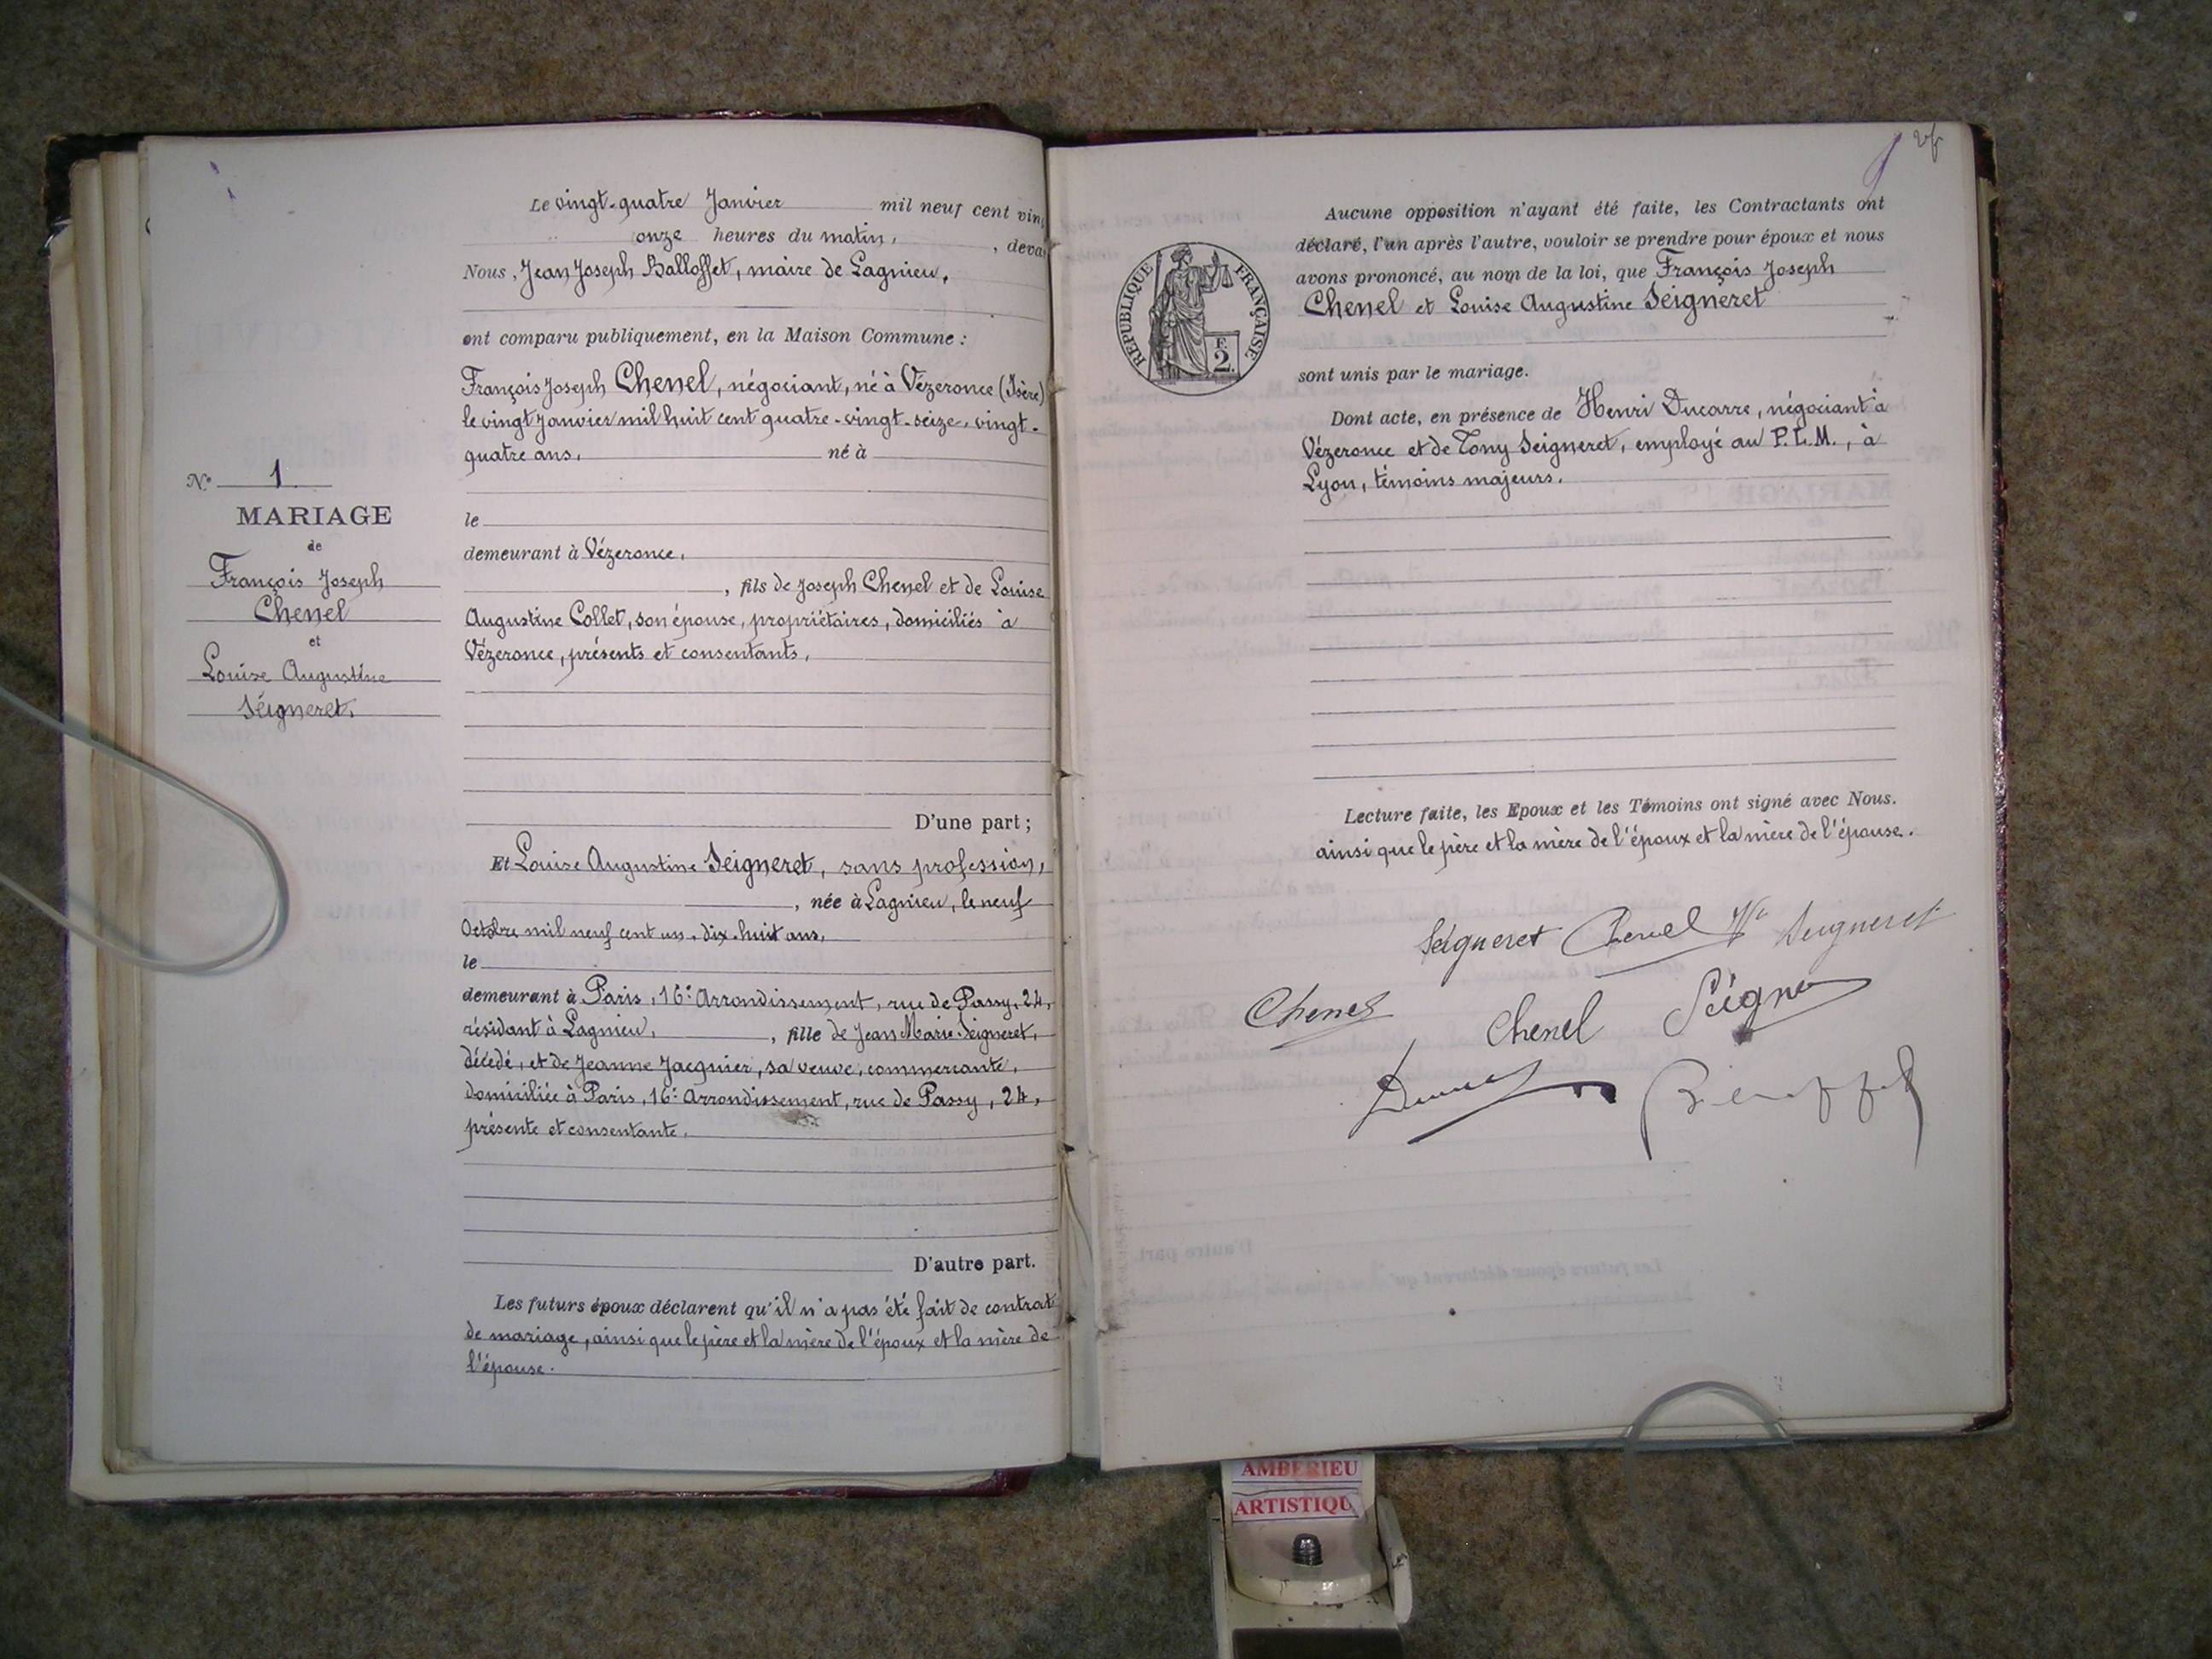 Le vingt-quatre Janvier mil neuf cent vin
onze heures du matin, , deva
Nous, Jean Joseph Balloffet, maire de Lagnieu,
ont comparu publiquement, en la Maison Commune :
François Joseph Chenel, négociant, né à Vézeronce (Isère)
le vingt Janvier mil huit cent quatre-vingt-seize, vingt-
quatre ans, né à
le
demeurant à Vézeronce,
, fils de Joseph Chenel et de Louise
Augustine Collet, son épouse, propriétaires, domiciliés à
Vézeronce, présents et consentants,
D'une part ;
Et Louise Augustine Seigneret, sans profession,
, née à Lagnieu, le neuf
Octobre mil neuf cent un, dix-huit ans,
le
demeurant à Paris, 16e Arrondissement, rue de Passy, 24,
résidant à Lagnieu, , fille de Jean Marie Seigneret,
décédé, et de Jeanne Jacquier, sa veuve, commerçante,
domiciliée à Paris, 16e Arrondissement, rue de Passy, 24,
présente et consentante.
D'autre part.
Les futurs époux déclarent qu'il n'a pas été fait de contrat
de mariage, ainsi que le père et la mère de l'époux et la mère de
l'épouse.
N° 1
MARIAGE
de
François Joseph
Chenel
et
Louise Augustine
Séigneret.
Aucune opposition n'ayant été faite, les Contractants ont
déclaré, l'un après l'autre, vouloir se prendre pour époux et nous
avons prononcé, au nom de la loi, que François Joseph
Chenel et Louise Augustine Seigneret
sont unis par le mariage.
Dont acte, en présence de Henri Ducarre, négociant à
Vézeronce et de Tony Seigneret, employé au P.L.M., à
Lyon, témoins majeurs.
Lecture faite, les Epoux et les Témoins ont signé avec Nous.
ainsi que le père et la mère de l'époux et la mère de l'épouse.
RÉPUBLIQUE FRANÇAISE
F.
2.
Seigneret Chenel Ve Seigneret
Chenel Chenel
AMBERIEU
ARTISTIQU